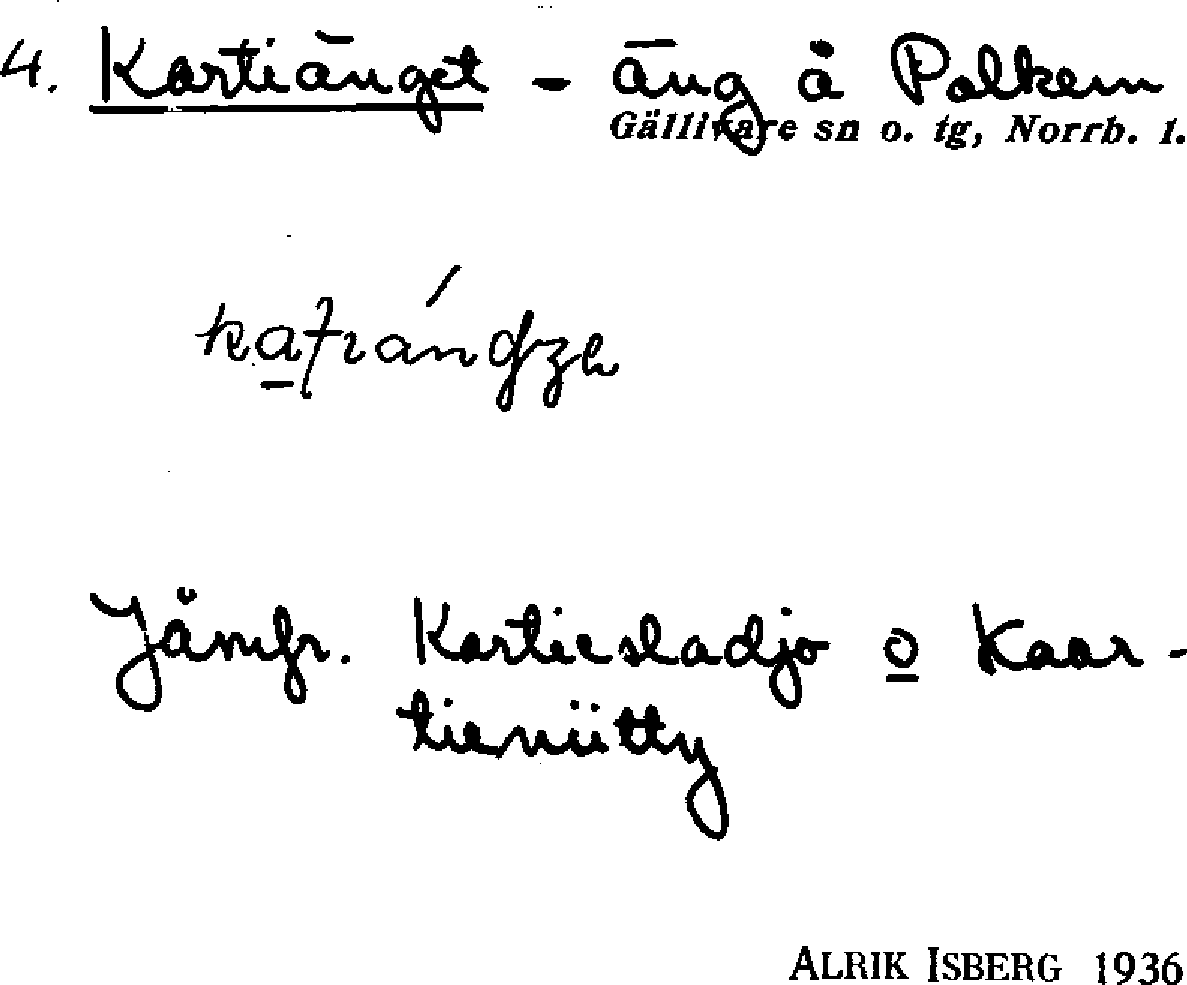 4. Kartiänget - äng å Polkem
Gällivare sn o. tg, Norrb. l.
Jämfr. Kartiesladjo o Kaar-
tieniitty
ALRIK ISBERG 1936